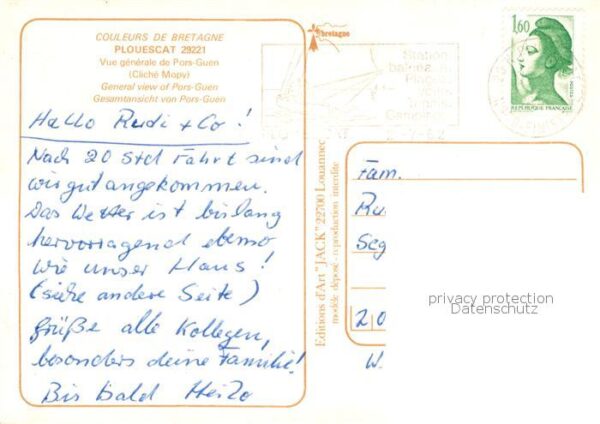 COULEURS DE BRETAGNE
PLOUESCAT 29221
Vue générale de Pors-Guen
(Cliché Mopy)
General view of Pors-Guen
Gesamtansicht von Pors-Guen
Hallo Rudi + Co!
Nach 20 Std Fahrt sind
wir gut angekommen.
Das Wetter ist bislang
hervorragend ebenso
wie unser Haus!
(siehe andere Seite)
Grüße alle Kollegen,
besonders deine Familie!
Bis bald Heiko
bretagne
Station
Camping
1,60
REPUBLIQUE FRANÇAISE
Editions d'Art "JACK" 22700 Louannec
modèle déposé - reproduction interdite
Fam.
Ru
Seg
20
W.
privacy protection
Datenschutz